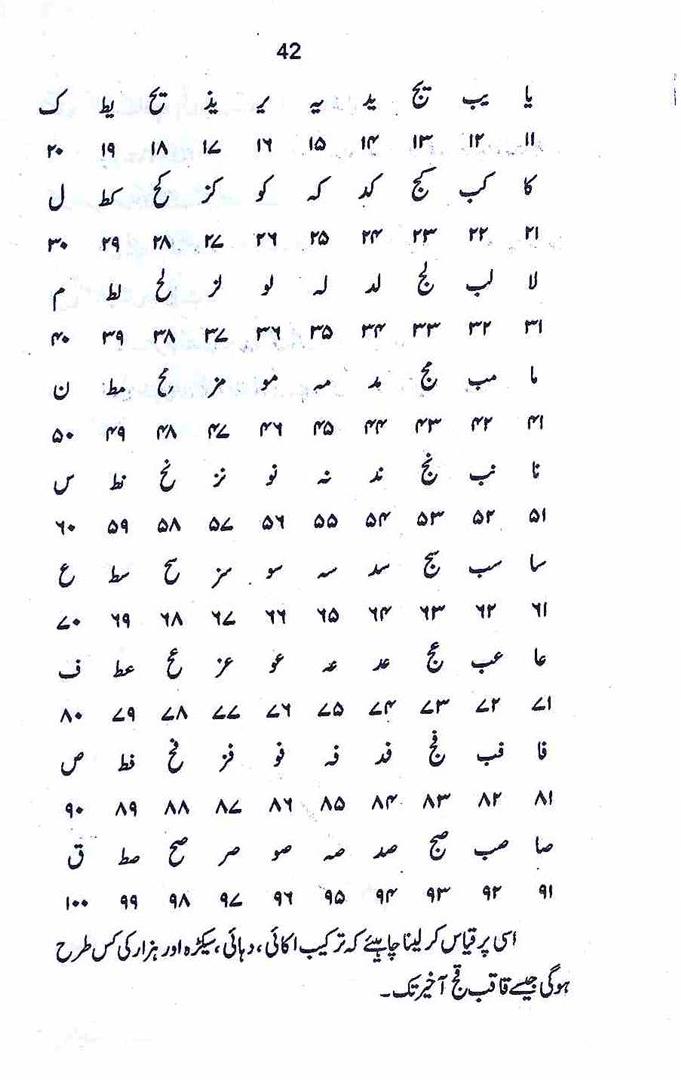 42
یا یب یج ید یہ یر یذ یح یط ک
۱۱ ۱۲ ۱۳ ۱۴ ۱۵ ۱۶ ۱۷ ۱۸ ۱۹ ۲۰
کا کب کج کد کہ کو کز کح کط ل
۲۱ ۲۲ ۲۳ ۲۴ ۲۵ ۲۶ ۲۷ ۲۸ ۲۹ ۳۰
لا لب لج لد لہ لو لز لح لط م
۳۱ ۳۲ ۳۳ ۳۴ ۳۵ ۳۶ ۳۷ ۳۸ ۳۹ ۴۰
ما مب مج مد مہ مو مز مح مط ن
۴۱ ۴۲ ۴۳ ۴۴ ۴۵ ۴۶ ۴۷ ۴۸ ۴۹ ۵۰
نا نب نج ند نہ نو نز نح نط س
۵۱ ۵۲ ۵۳ ۵۴ ۵۵ ۵۶ ۵۷ ۵۸ ۵۹ ۶۰
سا سب سج سد سہ سو سز سح سط ع
۶۱ ۶۲ ۶۳ ۶۴ ۶۵ ۶۶ ۶۷ ۶۸ ۶۹ ۷۰
عا عب عج عد عہ عو عز عح عط ف
۷۱ ۷۲ ۷۳ ۷۴ ۷۵ ۷۶ ۷۷ ۷۸ ۷۹ ۸۰
فا فب فج فد فہ فو فز فح فط ص
۸۱ ۸۲ ۸۳ ۸۴ ۸۵ ۸۶ ۸۷ ۸۸ ۸۹ ۹۰
صا صب صج صد صہ صو صر صح صط ق
۹۱ ۹۲ ۹۳ ۹۴ ۹۵ ۹۶ ۹۷ ۹۸ ۹۹ ۱۰۰
اسی پر قیاس کر لینا چاہیئے کہ ترکیب اکائی، دہائی، سیکڑہ اور ہزار کی کس طرح
ہوگی جیسے قا قب قج آخیر تک۔